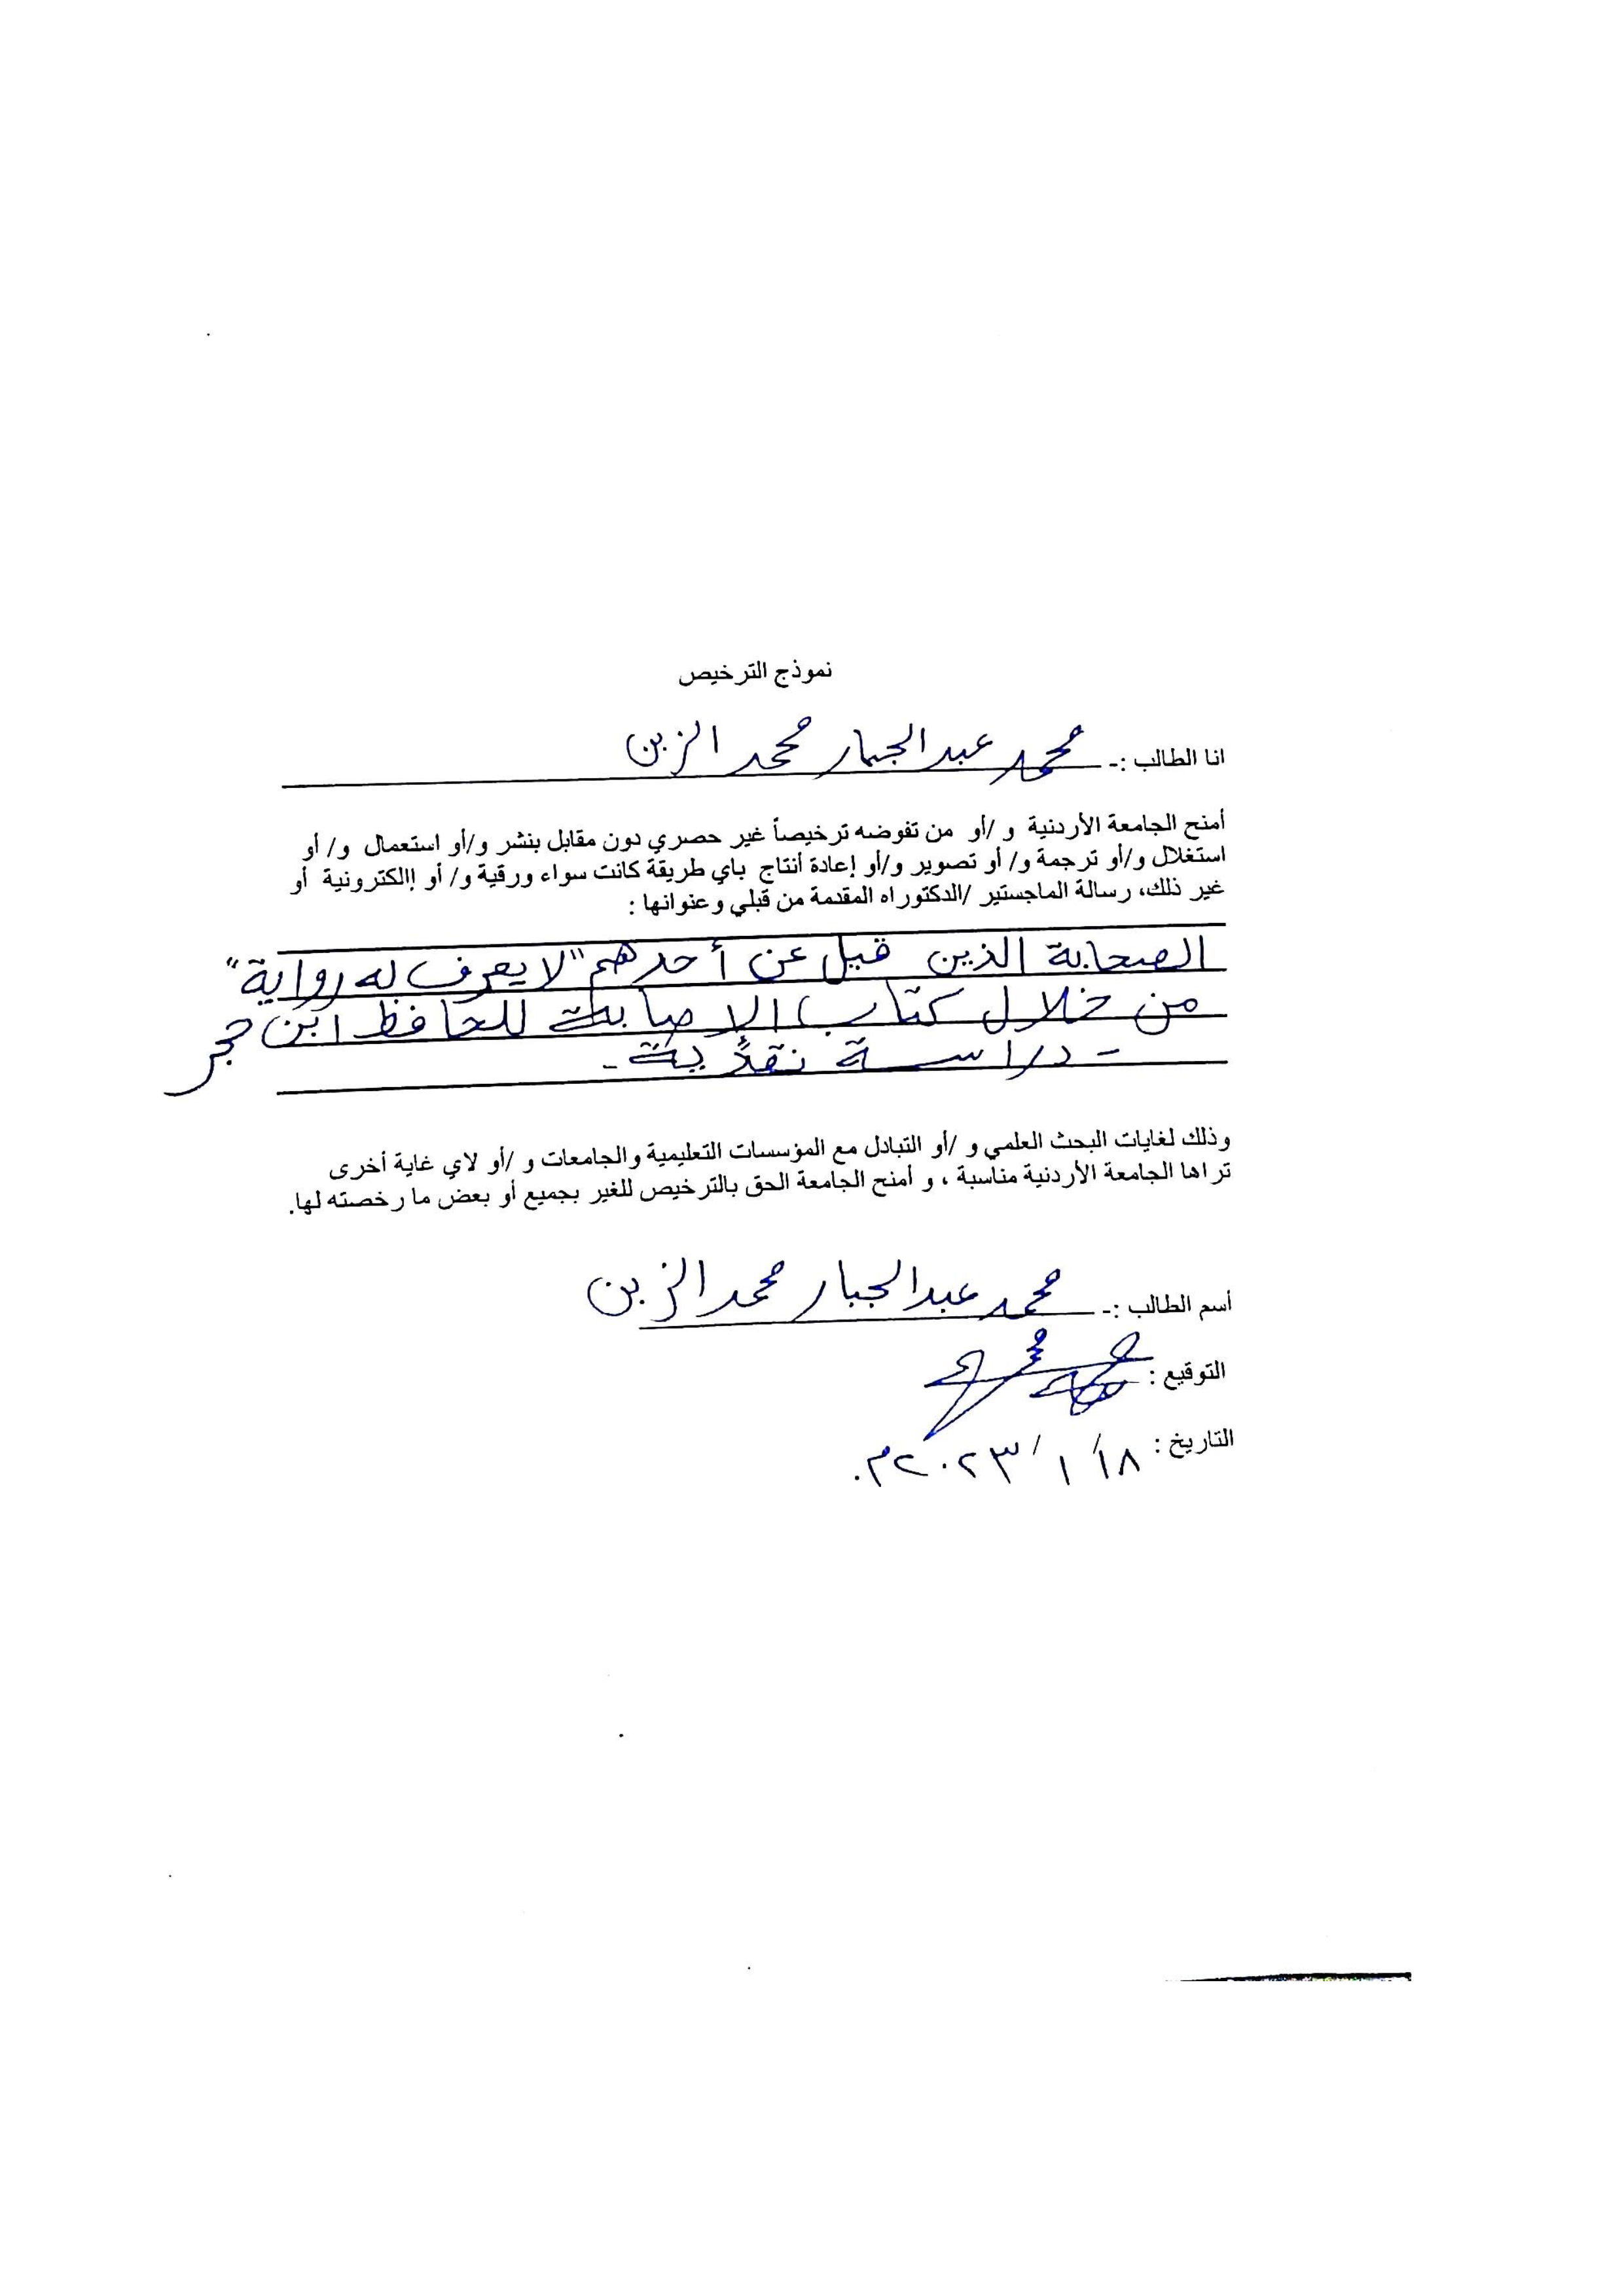 نموذج الترخيص
انا الطالب :- محمد عبدالجبار محمد الزبن
أمنح الجامعة الأردنية و /أو من تفوضه ترخيصاً غير حصري دون مقابل بنشر و/أو استعمال و/ أو
استغلال و/أو ترجمة و/ أو تصوير و/أو إعادة أنتاج باي طريقة كانت سواء ورقية و/ أو إالكترونية أو
غير ذلك، رسالة الماجستير /الدكتوراه المقدمة من قبلي وعنوانها :
الصحابة الذين قيل عن أحدهم "لا يعرف له رواية"
من خلال كتاب الإصابة للحافظ ابن حجر
- دراسة نقدية -
وذلك لغايات البحث العلمي و /أو التبادل مع المؤسسات التعليمية والجامعات و /أو لاي غاية أخرى
تراها الجامعة الأردنية مناسبة ، و أمنح الجامعة الحق بالترخيص للغير بجميع أو بعض ما رخصته لها.
أسم الطالب :- محمد عبدالجبار محمد الزبن
التوقيع :
التاريخ : ١٨/ ١ / ٢٠٢٣م.